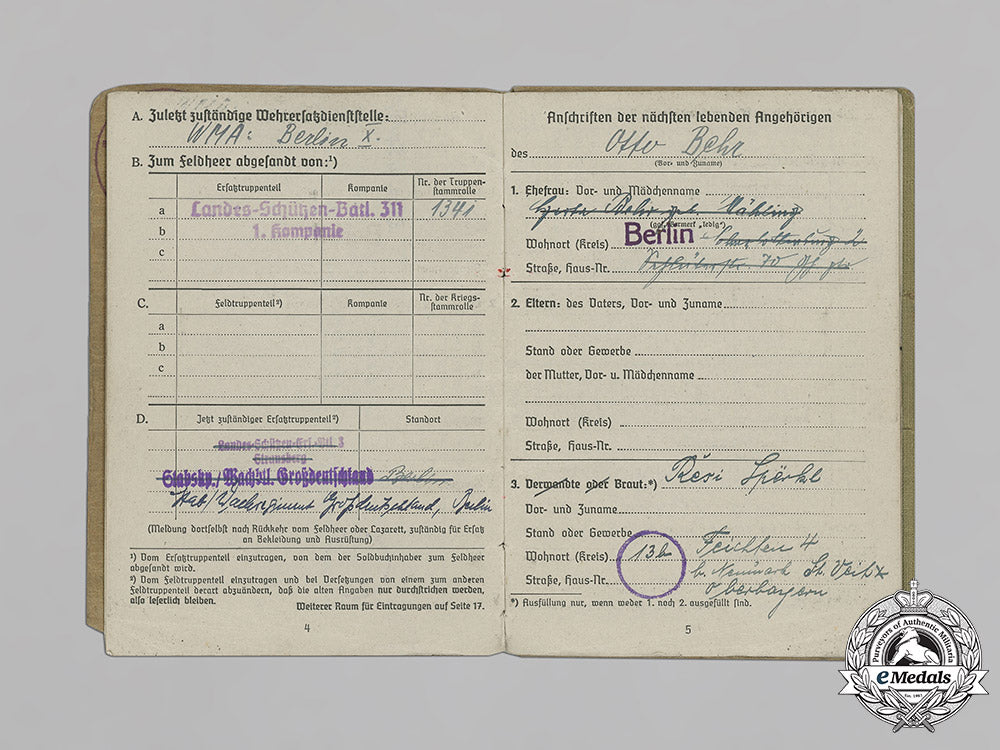 A. Zuletzt zuständige Wehrersatzdienststelle:
WMA: Berlin X.
B. Zum Feldheer abgesandt von:¹)
Ersatztruppenteil Kompanie Nr. der Truppen-
stammrolle
a Landes-Schützen-Batl. 311 1341
b 1. Kompanie
c
C. Feldtruppenteil²) Kompanie Nr. der Kriegs-
stammrolle
a
b
c
D. Jetzt zuständiger Ersatztruppenteil²) Standort
Landes-Schützen-Ers.-Btl. 3
Strausberg
Stabskp./Wachbtl. Großdeutschland Berlin
Stab/Wachregiment Großdeutschland, Berlin
(Meldung dortselbst nach Rückkehr vom Feldheer oder Lazarett, zuständig für Ersatz
an Bekleidung und Ausrüstung)
¹) Vom Ersatztruppenteil einzutragen, von dem der Soldbuchinhaber zum Feldheer
abgesandt wird.
²) Vom Feldtruppenteil einzutragen und bei Versetzungen von einem zum anderen
Feldtruppenteil derart abzuändern, daß die alten Angaben nur durchstrichen werden,
also leserlich bleiben.
Weiterer Raum für Eintragungen auf Seite 17.
4
Anschriften der nächsten lebenden Angehörigen
des Otto Behr
(Vor- und Zuname)
1. Ehefrau: Vor- und Mädchenname
Behr geb.
(ggf. Vermerk „ledig")
Wohnort (Kreis) Berlin Charlottenburg 2
Straße, Haus-Nr. Schlüterstr. 70
2. Eltern: des Vaters, Vor- und Zuname
Stand oder Gewerbe
der Mutter, Vor- u. Mädchenname
Wohnort (Kreis)
Straße, Haus-Nr.
3. Verwandte oder Braut:*) Resi
Vor- und Zuname
Stand oder Gewerbe
Wohnort (Kreis) 13b Feichten 4
b. Neumarkt St. Veit
Straße, Haus-Nr. Oberbayern
*) Ausfüllung nur, wenn weder 1. noch 2. ausgefüllt sind.
5
Purveyors of Authentic Militaria
eMedals